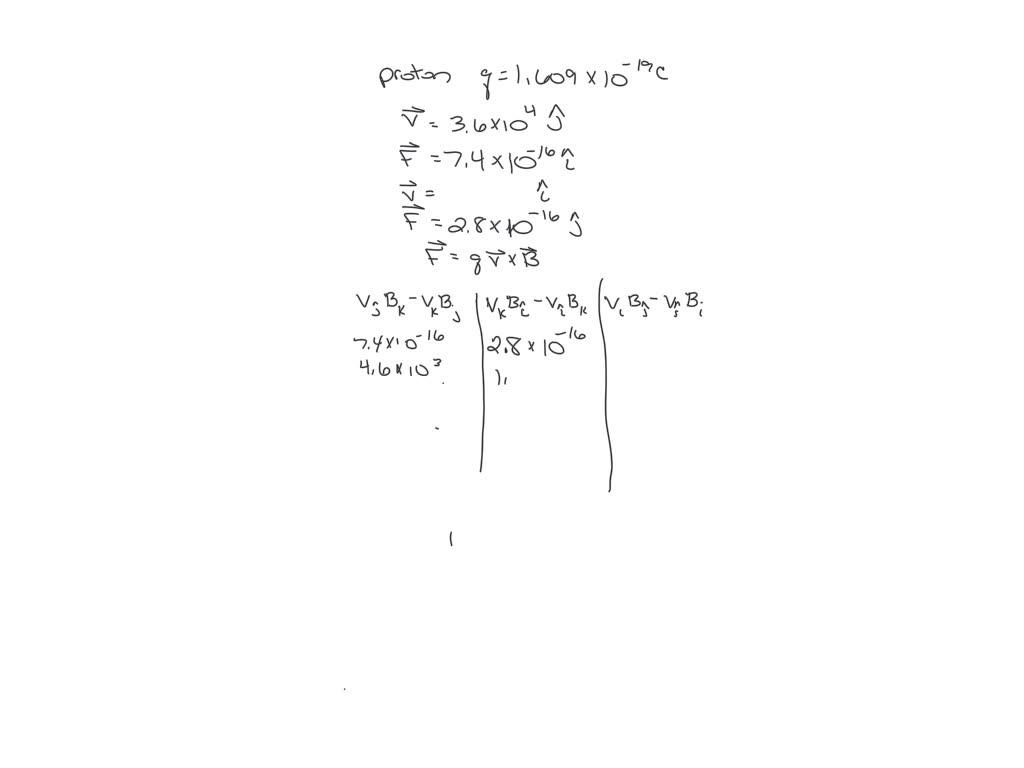 proton q = 1.609 × 10⁻¹⁹C
v⃗ = 3.6×10⁴ ĵ
F⃗ = 7.4 × 10⁻¹⁶ î
v⃗ = î
F⃗ = 2.8 × 10⁻¹⁶ ĵ
F⃗ = q v⃗ × B⃗
V_ĵ B_k − V_k B_j | V_k B_î − V_î B_k | V_i B_ĵ − V_ĵ B_i
7.4×10⁻¹⁶ | 2.8 × 10⁻¹⁶
4.6 × 10³ | 1.